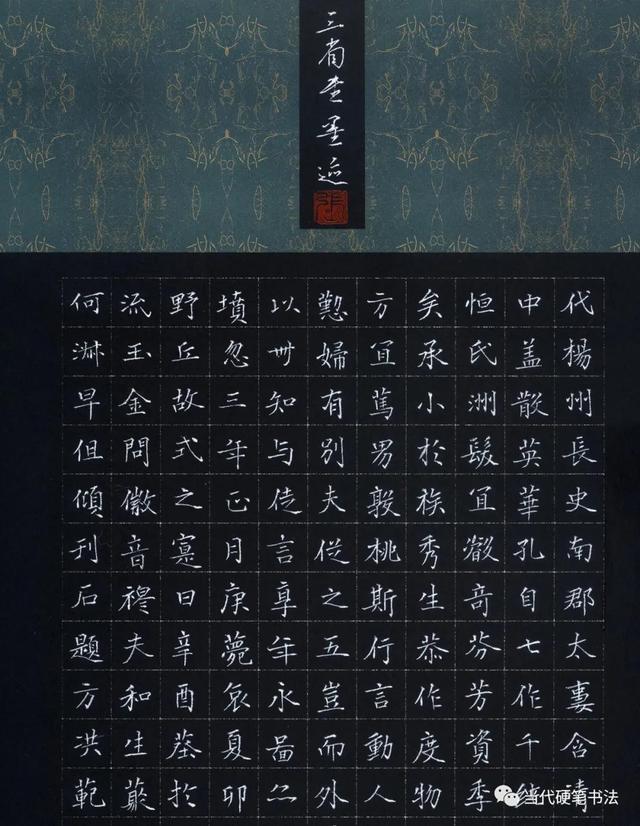 三省堂墨迹
张
代楊州長史南郡太妻含
中盖散英華孔自七作千
恒氏洲髮宜奇芬芳資季
矣承小於族秀生恭作度物
方宜篤男毅桃斯行言動人
懃婦有別夫從之五豈而外
以卌知与徒言享年永啚尒
墳忽三年正月庚薨哀夏卯
野丘故式之日辛酉於
流玉金問徽音穆夫和生
何早但傾刊石題方洪範
当代硬笔书法